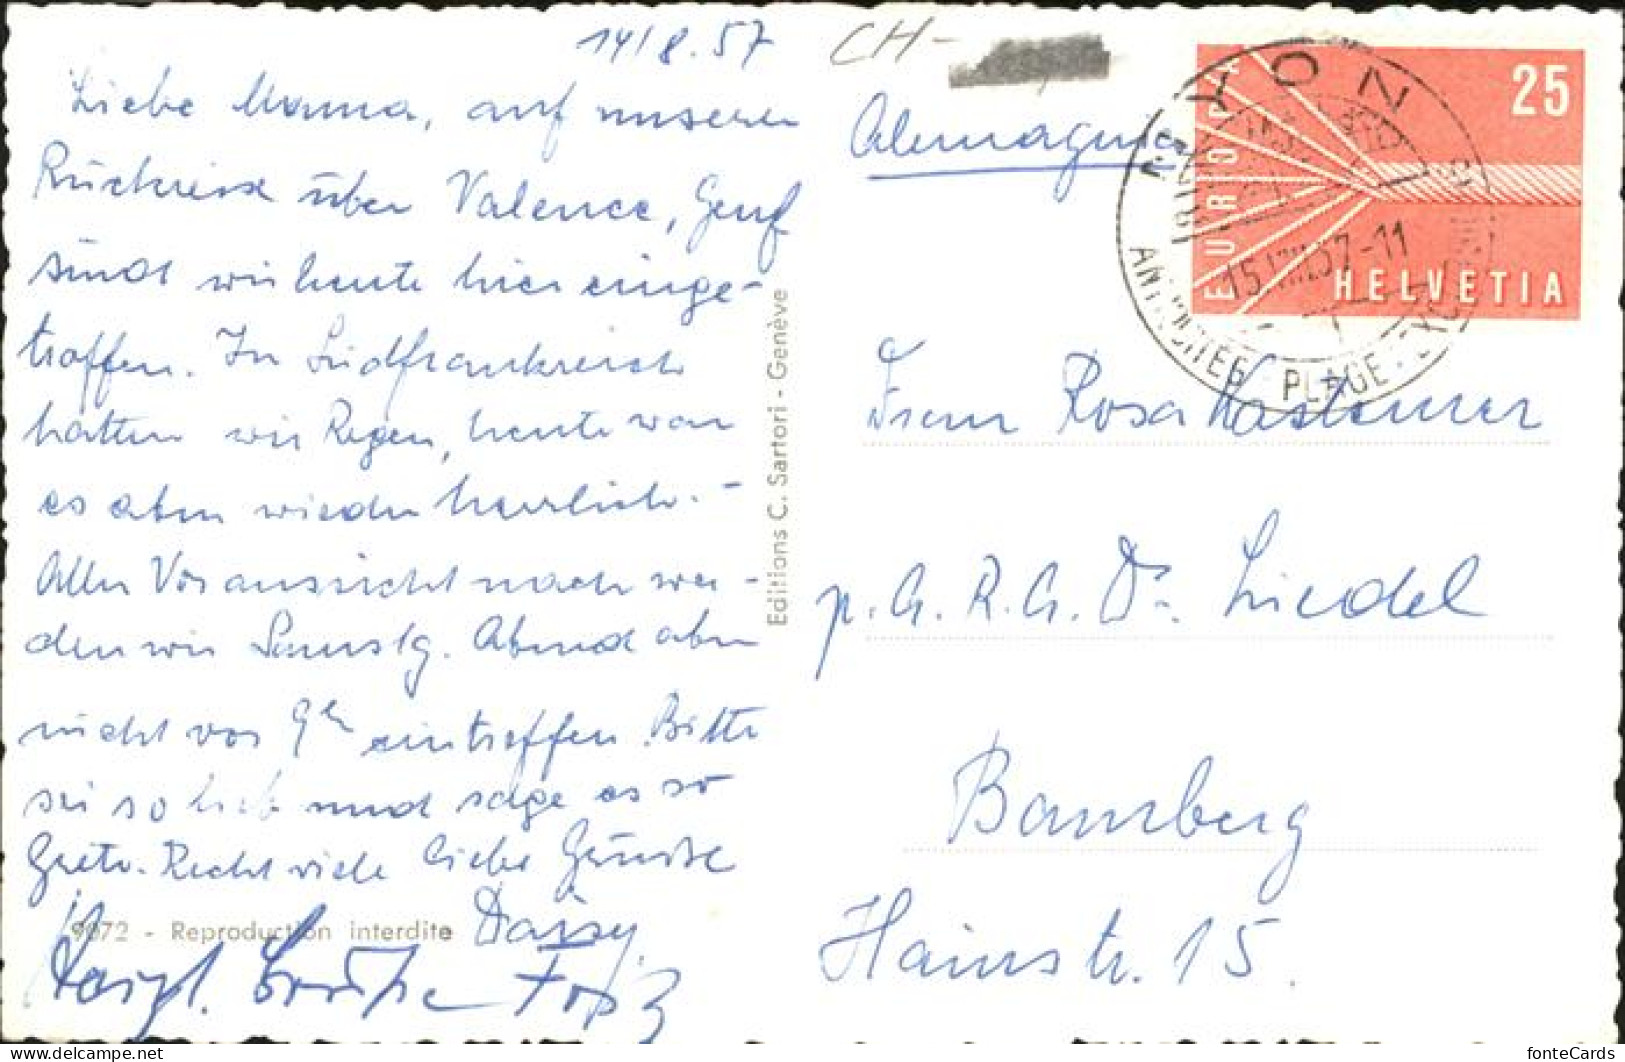 14/8.57
CH-
Liebe Mama, auf unserer
Rückreise über Valence, Genf
sind wir heute hier einge-
troffen. In Südfrankreich
hatten wir Regen, heute war
es aber wieder herrlich. -
Aller Voraussicht nach wer-
den wir Samstg. Abend aber
nicht vor 9h eintreffen. Bitte
sei so lieb und sage es so
Grete. Recht viele liebe Grüsse
Daisy.
Herzl. Grüße
9072 - Reproduction interdite
Editions C. Sartori - Genève
Alemagnia
EUROPA
25
HELVETIA
NYON
15.VIII.57-11
PLAGE
Frau Rosa Kastener
p. A. R. A. Dr. Liedel
Bamberg
Hainstr. 15.
fonteCards